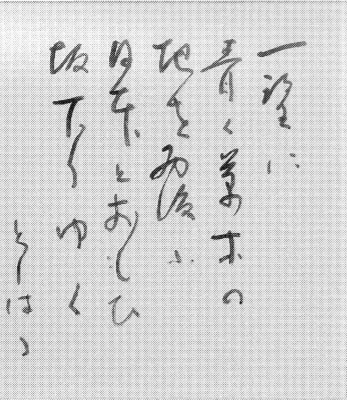 一望に
青く草木の
地を覆ふ
日本とおもひ
坂下りゆく